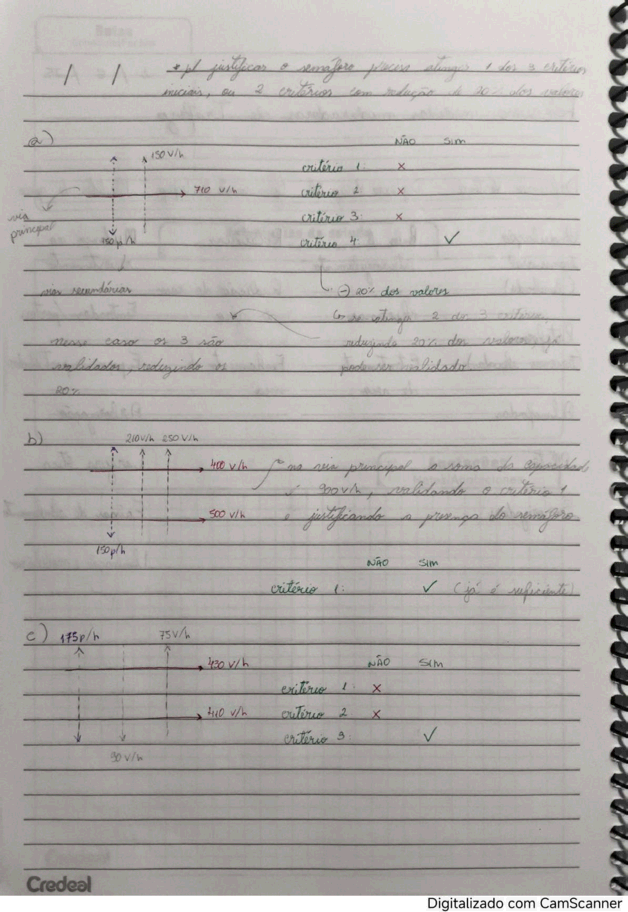 / / * p/ justificar o semáforo precisa atingir 1 dos 3 critérios
iniciais, ou 2 critérios com redução de 20% dos valores
a)
NÃO SIM
150 V/h
critério 1: x
710 V/h critério 2 x
via principal
critério 3: x
150 p/h critério 4: ✓
vias secundárias (-) 20% dos valores
se atinge 2 dos 3 critérios,
nesse caso os 3 são reduzindo 20% dos valores, já
validados, reduzindo os pode ser validado.
20%
b)
210 V/h 250 V/h
400 V/h na via principal a soma da capacidade
é 900 v/h, validando o critério 1
500 V/h e justificando a presença do semáforo
150 p/h
NÃO SIM
critério 1: ✓ (já é suficiente)
c) 175 p/h 75 V/h
430 V/h NÃO SIM
critério 1: x
440 V/h critério 2 x
critério 3: ✓
90 V/h
Credeal
Digitalizado com CamScanner